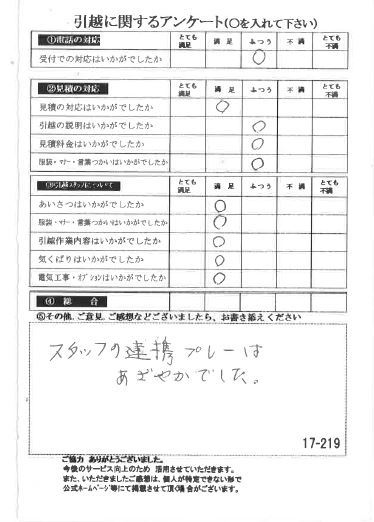 引越に関するアンケート(○を入れて下さい)
①電話の対応 とても満足 満足 ふつう 不満 とても不満
受付での対応はいかがでしたか ○
②見積の対応 とても満足 満足 ふつう 不満 とても不満
見積の対応はいかがでしたか ○
引越の説明はいかがでしたか ○
見積料金はいかがでしたか ○
服装・マナー・言葉つかいはいかがでしたか ○
③引越スタッフについて とても満足 満足 ふつう 不満 とても不満
あいさつはいかがでしたか ○
服装・マナー・言葉つかいはいかがでしたか ○
引越作業内容はいかがでしたか ○
気くばりはいかがでしたか ○
電気工事・オプションはいかがでしたか ○
④総合
⑤その他、ご意見、ご感想などございましたら、お書き添えください
スタッフの連携プレーは
あざやかでした。
17-219
ご協力 ありがとうございました。
今後のサービス向上のため 活用させていただきます。
また、いただきましたご感想は、個人が特定できない形で
公式ホームページ等にて掲載させて頂く場合がございます。